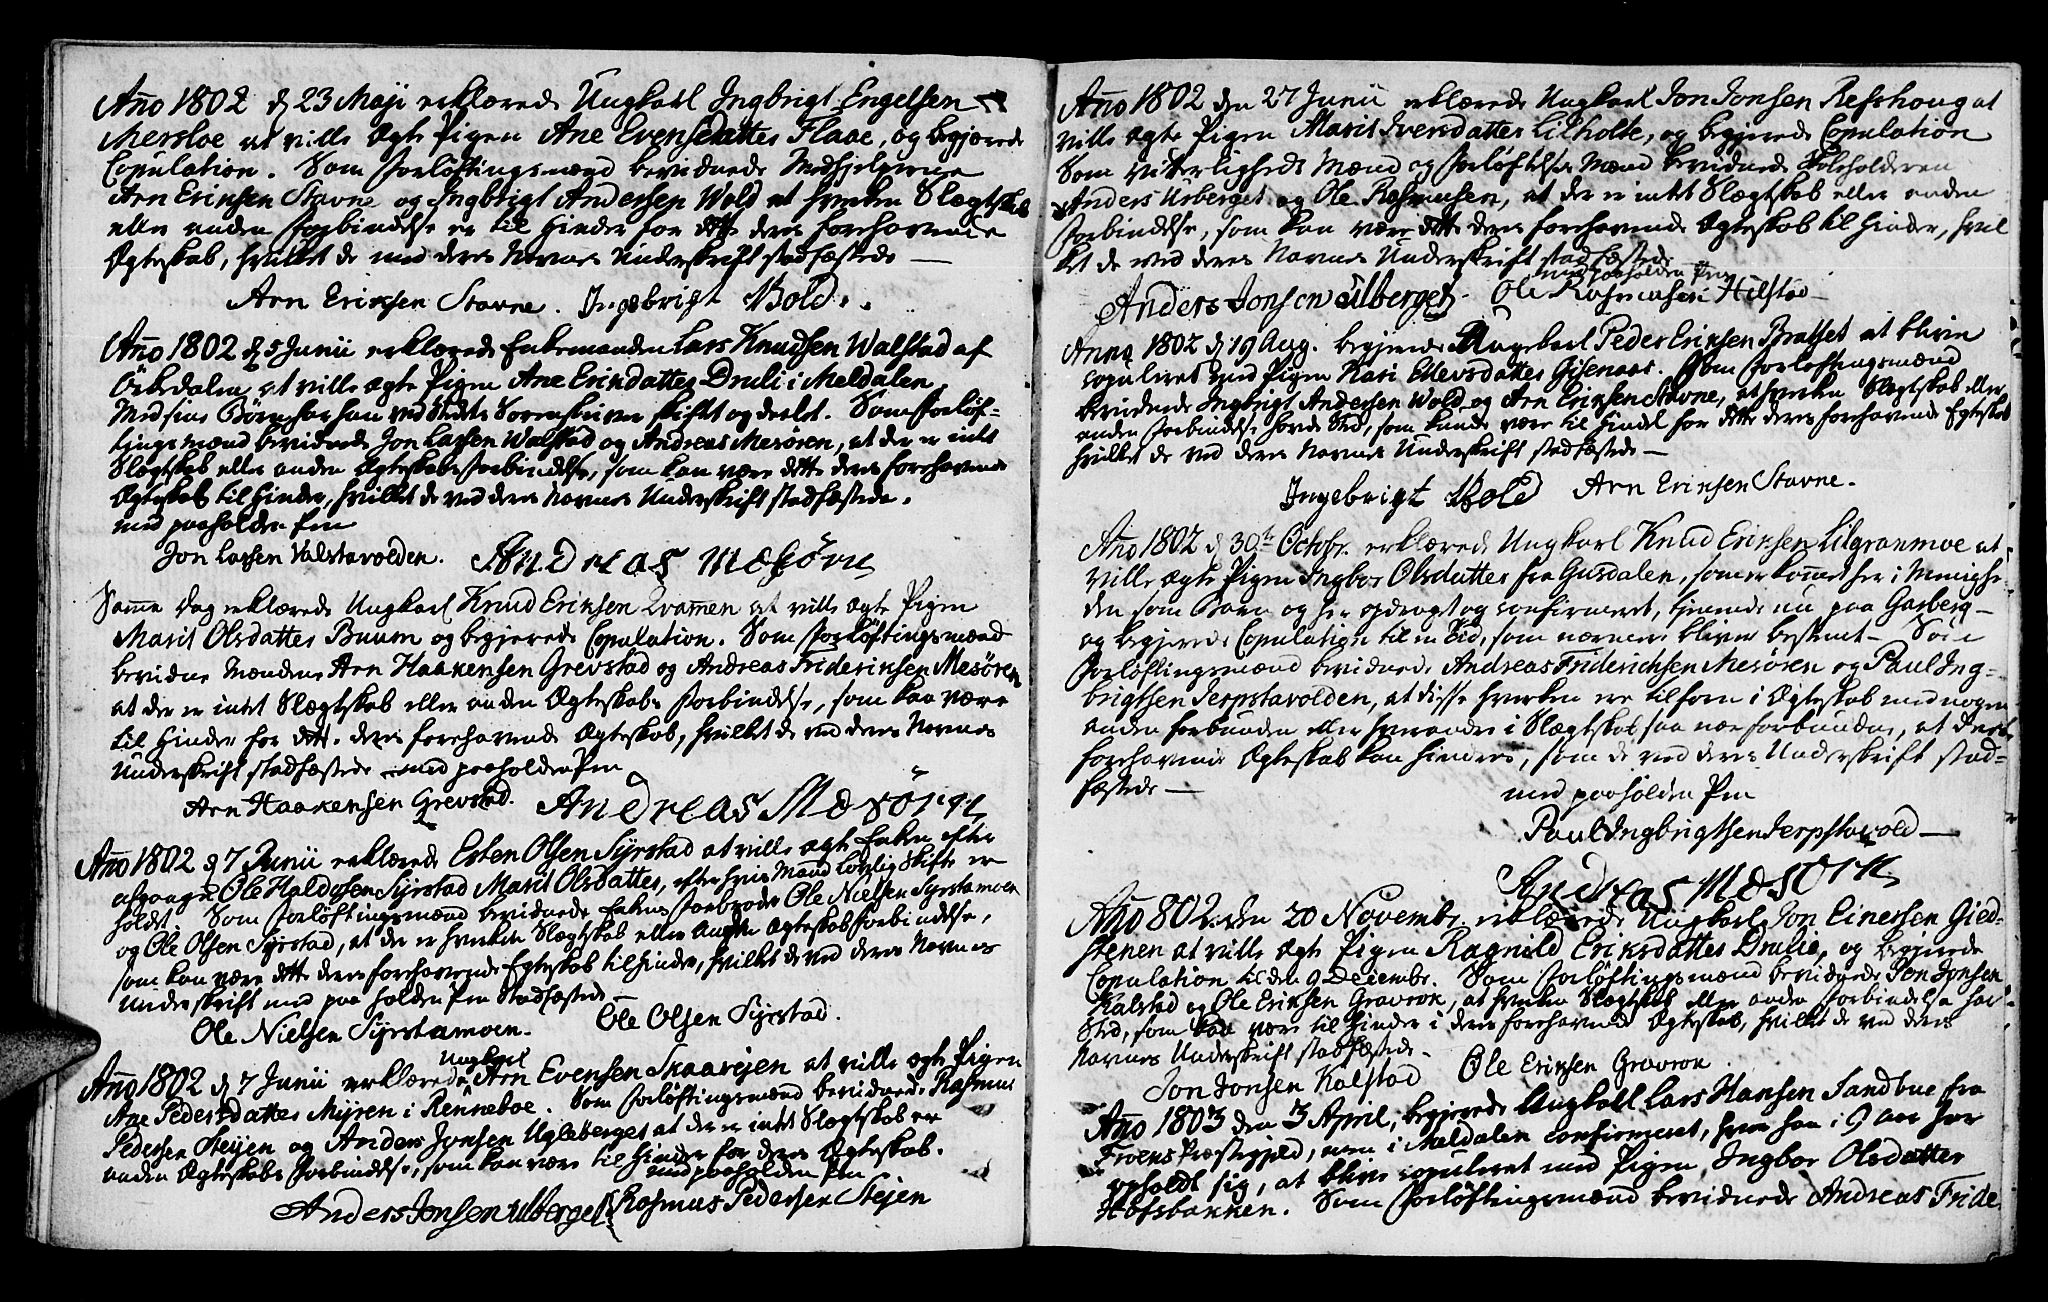 Año 1802 d 23 Maji erklærede Ungkarl Ingbrigt Engelsen
Mersloe at ville ægte Pigen Ane Evensdatter Flaae, og begjærede
Copulation. Som Forløftingsmænd bevidnede Medhjelperne
Arn Eriksen Stavne og Ingbrigt Andersen Wold at hverken Slægtskab
eller anden Forbindelse er til Hinder for dette deres forehavende
Ægteskab, hvilket de med deres Navnes Underskrift stadfæstede —
Arn Eriksen Stavne. Ingebrigt Wold.
Año 1802 d 5 Junii erklærede Enkemanden Lars Knudsen Walstad af
Örkedalen at ville ægte Pigen Ane Eriksdatter Druli i Meldalen
Med sine Börn har han ved Stedets Sorenskriver skiftet og deelt. Som Forløf-
tingsmænd bevidnede Jon Larsen Walstad og Andreas Mesören, at der er intet
Slægtskab eller anden Ægteskabs Forbindelse, som kan være dette deres forehavende
Ægteskab til Hinder, hvilket de ved deres Navnes Underskrift stadfæstede.
med paaholden Pen
Jon Larsen Valstavolden. Andreas Mesörn
Samme Dag erklærede Ungkarl Knud Eriksen Qvamen at ville ægte Pigen
Marit Olsdatter Buum og begjerede Copulation. Som Forløftingsmænd
bevidne Mændene Arn Haakensen Grevstad og Andreas Frideriksen Mesören
at der er intet Slægtskab eller anden Ægteskabs Forbindelse, som kan være
til Hinder for dette deres forehavende Ægteskab, hvilket de ved deres Navnes
Underskrift stadfæstede med paaholden Pen
Arn Haakensen Grevstad. Andreas Mesören
Año 1802 d 7 Junii erklærede Esten Olsen Syrstad at ville ægte Enken efter
afgangne Ole Haldosen Syrstad Marit Olsdatter, efter hvis Mand lovlig Skifte er
holdt. Som Forløftingsmænd bevidnede Enkens Farbroder Ole Nielsen Syrstamoen
og Ole Olsen Syrstad, at der er hverken Slægtskab eller anden Ægteskabsforbindelse,
som kan være dette deres forehavende Egteskab til Hinder, hvilket de ved deres Navnes
Underskrift med paaholden Pen Stadfæstede —
Ole Nielsen Syrstamoen. Ole Olsen Syrstad.
Ungkarl
Año 1802 d 7 Junii erklærede Arn Evensen Skaarejen at ville ægte Pigen
Ane Pedersdatter Myren i Renneboe. Som Forløftingsmænd bevidnede Rasmus
Pedersen Stejen og Anders Jonsen Ugleberget at der er intet Slægtskab er
anden Ægteskabs Forbindelse, som kan være til Hinder for deres Ægteskab.
med paaholden Pen
Anders Jonsen Ulberget Rasmus Pedersen Stejen
Año 1802 den 27 Junii erklærede Ungkarl Jon Jonsen Refshoug at
ville ægte Pigen Marit Iversdatter Lilholte, og begjerede Copulation
Som Vitterligheds Mænd og Forløftelses Mænd bevidnede Skoleholderen
Anders Urberget og Ole Rasmusen, at der er intet Slægtskab eller anden
Forbindelse, som kan være dette deres forehavende Ægteskab til Hinder, hvil
ket de ved deres Navnes Underskrift stadfæstede
med paaholden Pen
Anders Jonsen Ulberget. Ole Rasmusen Hilstad —
Anno 1802 d 19 Aug. begjerede Ungkarl Peder Eriksen Brattset at blive
copuleret med Pigen Kari Ellevsdatter Gisenaas. Som Forløftingsmænd
bevidnede Ingbrigt Andersen Wold og Arn Eriksen Stavne, at hverken Slægtskab eller
anden Forbindelse havde Sted, som kunde være til Hindel for dette deres forehavende Egteskab
hvilket de ved deres Navnes Underskrift stadfæstede —
Ingebrigt Wold Arn Eriksen Stavne.
Año 1802 d 30te Octobr. erklærede Ungkarl Knud Eriksen Lilgranmoe at
ville ægte Pigen Ingbor Olsdatter fra Gusdalen, som er komet her i Menighe-
den som Barn og her opdragt og confirmeret, tjenende nu paa Garberg —
og begjerede Copulation til en Tid, som nærmere bliver bestemt — Som
Forløftingsmænd bevidnede Andreas Friderichsen Mesören og Paul Ing-
brigtsen Jerpstavolden, at disse hverken ere tilforn i Ægteskab med nogen
anden forbunden eller hverandre i Slægtskab saa nær forbundne, at deres
forehavende Ægteskab kan hindres, som de ved deres Underskrift stad-
fæstede —
med paaholden Pen
Paul Ingbrigtsen Jerpstavold —
Andreas Mesörn
Año 802. den 20 Novembr. erklærede Ungkarl Jon Einersen Gied-
stenen at ville ægte Pigen Ragnild Eriksdatter Drulie, og begjerede
Copulation til den 9 Decembr. Som Forløftingsmænd bevidnede Jon Jonsen
Kalstad og Ole Eriksen Gravrok, at hverken Slægtskab eller anden Forbindelse har
Sted, som kan være til Hinder i deres forehavende Ægteskab, hvilket de ved deres
Navnes Underskrift stadfæstede —
Jon Jonsen Kalstad Ole Eriksen Gravrok
Año 1803 den 3 April, begjerede Ungkarl Lars Hansen Sandbue fra
Froens Præstegjeld, men i Meldalen confirmeret, hvor han i 9 Aar har
opholdt sig, at blive copuleret med Pigen Ingbor Olsdatter
Hofsbakken. Som Forløftingsmænd bevidnede Andreas Fride